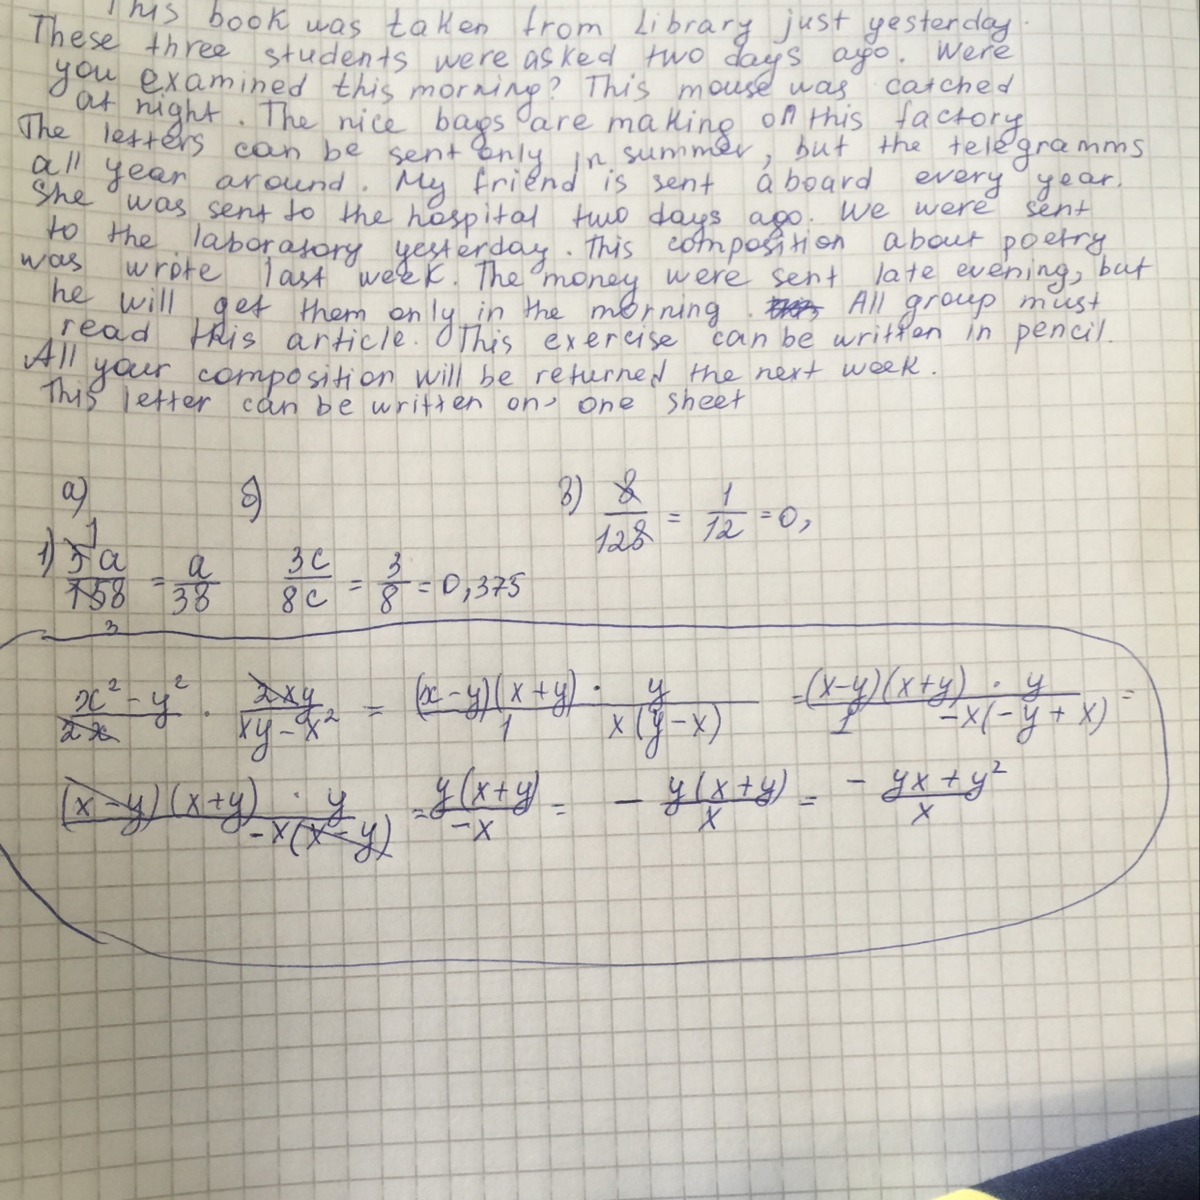 This book was taken from library just yesterday.
These three students were asked two days ago. Were
you examined this morning? This mouse was catched
at night. The nice bags are making on this factory
The letters can be sent only in summer, but the telegramms
all year around. My friend is sent aboard every year.
She was sent to the hospital two days ago. We were sent
to the laboratory yesterday. This composition about poetry
was wrote last week. The money were sent late evening, but
he will get them only in the morning. All group must
read this article. This exercise can be written in pencil.
All your composition will be returned the next week.
This letter can be written on, one sheet
а) б) 3) 8/128 = 1/12 = 0,
1) 5a/158 = a/38 3c/8c = 3/8 = 0,375
1
3
x² - y²/2x · 2xy/xy - x² = (x-y)(x+y)/1 · y/x(y-x) = (x-y)(x+y)/1 · y/-x(-y+x) =
(x-y)(x+y) · y/-x(x-y) = y(x+y)/-x = - y(x+y)/x = - yx+y²/x